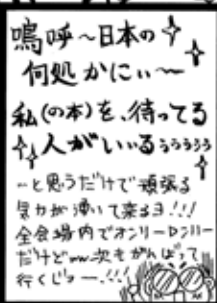 嗚呼〜日本の
何処かにぃ〜
私(の本)を、待ってる
人がいぃるぅぅぅぅぅ
…と思うだけで頑張る
気力が湧いて来るヨ!!!
全会場内でオンリーロンリー
だけどww次もがんばって
行くじょー!!!